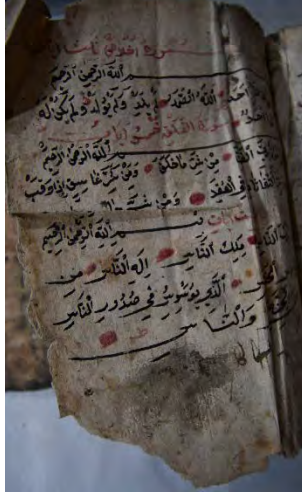 سورة اخلاص ثلاث
بسم الله الرحمن الرحيم
احد الله الصمد يلد ولم يولد ولم يكن له
احد سورة الفلق خمس
بسم الله الرحمن الرحيم
من شر ما خلق ومن شر غاسق اذا وقب
النفاثات في العقد ومن شر
ست ايات بسم الله الرحمن الرحيم
ملك الناس اله الناس من
الذي يوسوس في صدور الناس
والناس